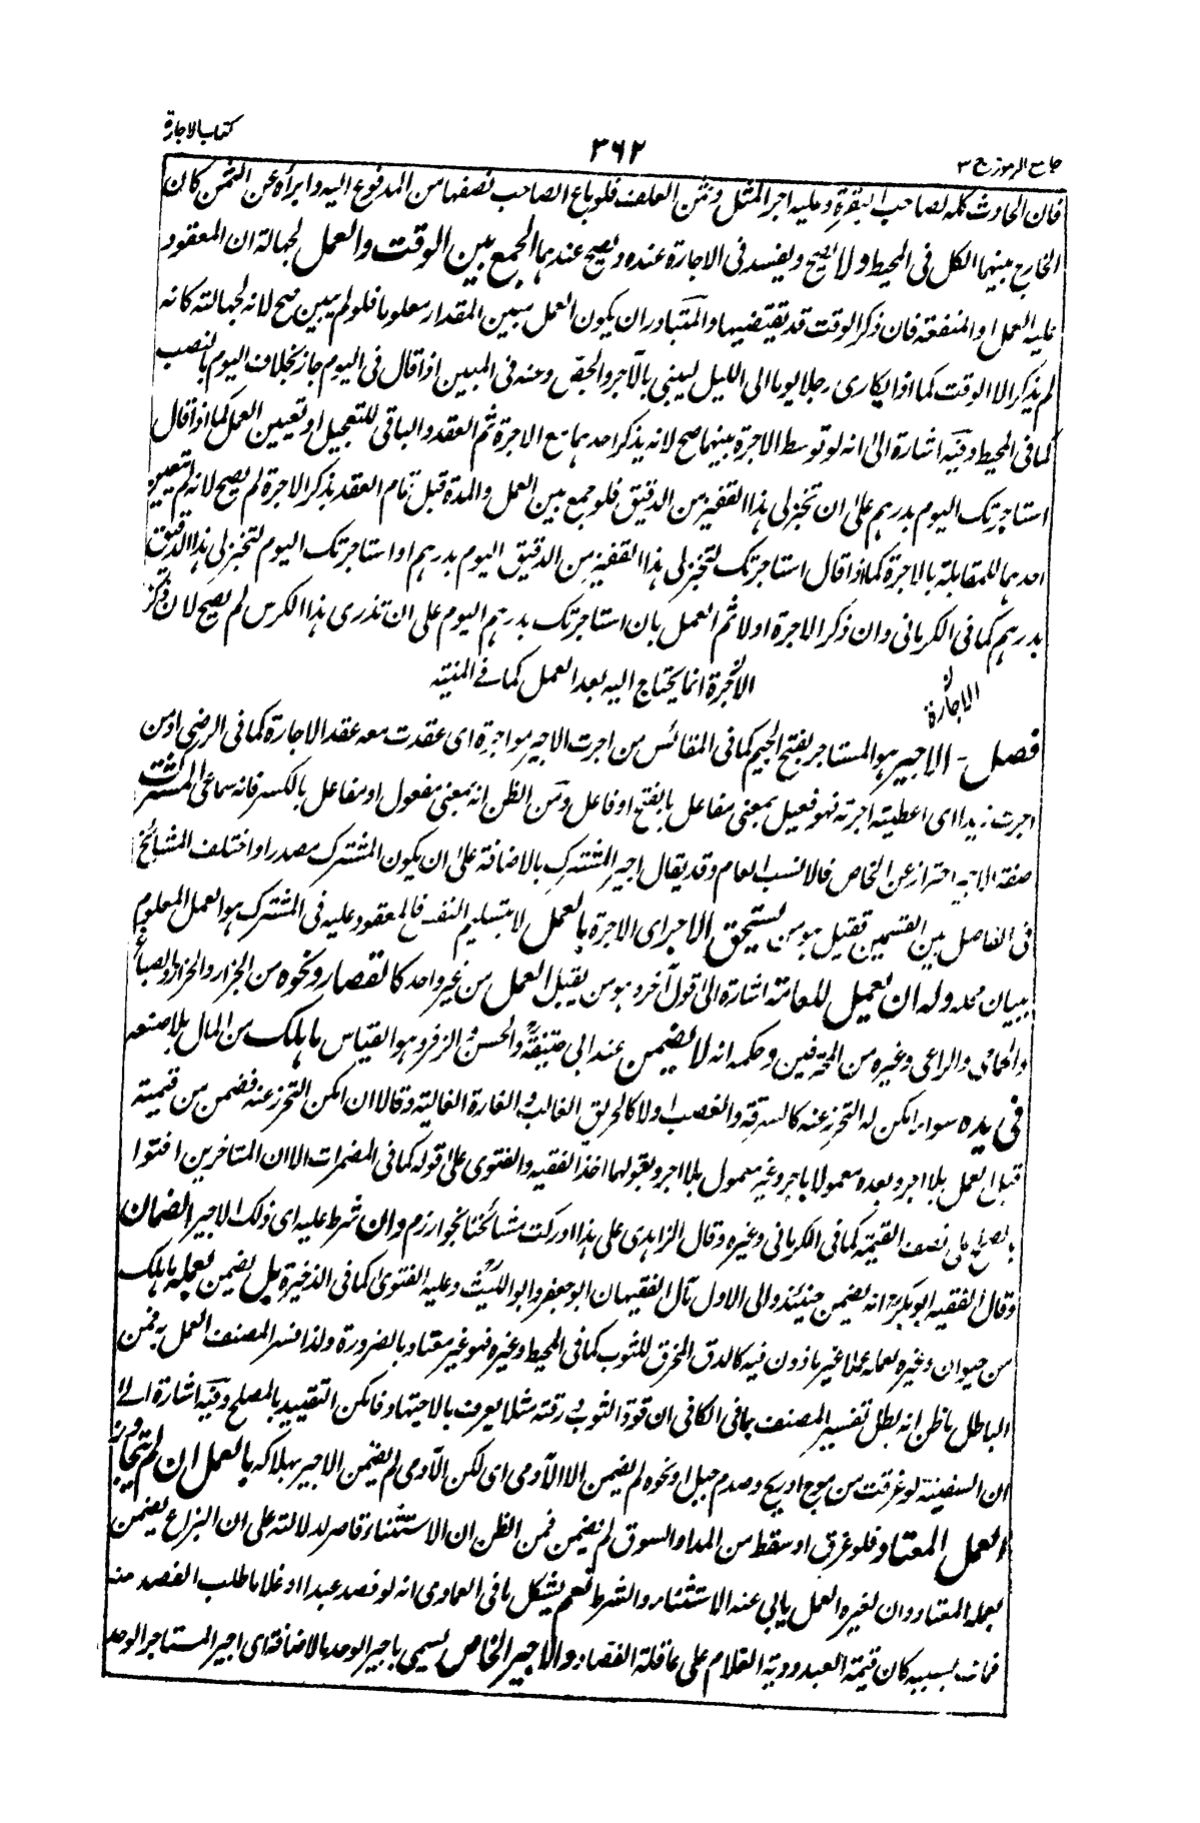 كتاب الاجارة
٣٦٢
جامع الرموز ج ٣
فان الحادث كله لصاحب البقرة وعليه اجر المثل وثمن العلف فلو باع الصاحب نصفها من المدفوع اليه وابرأه عن الثمن كان
الخارج بينهما الكل فى المحيط ولا يصح ويفسد فى الاجارة عنده ويصح عندهما الجمع بين الوقت والعمل لجهالة ان المعقود
عليه العمل او المنفعة فان ذكر الوقت قد يقتضيها والمتبادر ان يكون العمل مبين المقدار معلوما فلو لم يبين صح لانه لجهالته كانه
لم يذكر الا الوقت كما اذا يكارى رجلا يوما الى الليل ليبنى بالآجر والجص وعنه فى المبين اذا قال فى اليوم جاز بخلاف اليوم بالنصب
كما فى المحيط وفيه اشارة الى انه لو توسط الاجرة بينهما صح لانه يذكر احدهما مع الاجرة ثم العقد والباقى للتعجيل او تعيين العمل كما اذا قال
استاجرتك اليوم بدرهم على ان تخبز لى هذا القفيز من الدقيق فلو جمع بين العمل والمدة قبل تمام العقد بذكر الاجرة لم يصح لانه لم يتعين
احدهما للمقابلة بالاجرة كما اذا قال استاجرتك لتخبز لى هذا القفيز من الدقيق اليوم بدرهم او استاجرتك اليوم لتخبز لى هذا الدقيق
بدرهم كما فى الكرمانى وان ذكر الاجرة اولا ثم العمل بان استاجرتك بدرهم اليوم على ان تذرى هذا الكرس لم يصح لان ذكر
الاجرة انما يحتاج اليه بعد العمل كما فى المنية
الاجارة
فصل - الاجير هو المستاجر بفتح الجيم كما فى المقائس من اجرت الاجير مواجرة اى عقدت معه عقد الاجارة كما فى الرضى او من
اجرت زيدا اى اعطيته اجرته فهو فعيل بمعنى مفاعل بالفتح او فاعل ومن الظن انه بمعنى مفعول او مفاعل بالكسر فانه سماعى المشترك
صفة الاجير احتراز عن الخاص فالانسب العام وقد يقال اجير المشترك بالاضافة على ان يكون المشترك مصدرا واختلف المشائخ
فى الفاصل بين القسمين فقيل هو من يستحق الاجر اى الاجرة بالعمل لا بتسليم النفس فالمعقود عليه فى المشترك هو العمل المعلوم
ببيان محله وله ان يعمل للعامة اشارة الى قول آخر وهو من يقبل العمل من غير واحد كالقصار ونحوه من الجزار والخراز والصباغ
والحمامى والراعى وغيره من المحترفين وحكمه انه لا يضمن عند ابى حنيفة والحسن والزفر وهو القياس ما هلك من المال بلا صنعه
فى يده سواء امكن له التحرز عنه كالسرقة والغصب اولا كالحريق الغالب والغارة الغالبة وقالا ان امكن التحرز عنه فضمن من قيمته
قبل العمل بلا اجر وبعده معمولا باجر وغير معمول بلا اجر وبقولهما اخذ الفقيه والفتوى على قوله كما فى المضمرات الا ان المتاخرين افتوا
بالصلح على نصف القيمة كما فى الكرمانى وغيره وقال الزاهدى على هذا ادركت مشائخنا بخوارزم وان شرط عليه اى ذلك الاجير الضمان
وقال الفقيه ابو بكر انه يضمن حينئذ والى الاول مال الفقيهان ابو جعفر وابو الليث وعليه الفتوى كما فى الذخيرة بل يضمن بعمله ما هلك
من حيوان وغيره بعمله عملا غير ماذون فيه كالدق المخرق للثوب كما فى المحيط وغيره فهو غير معتاد بالضرورة ولذا فسر المصنف العمل به فمن
الباطل ما ظن انه بطل تفسير المصنف بما فى الكافى ان قوة الثوب ورقته مثلا يعرف بالاجتهاد فامكن التقييد بالمصلح وفيه اشارة الى
ان السفينة لو غرقت من موج او ريح وصدم جبل او نحوه لم يضمن الا الآدمى اى لكن الآدمى لم يضمن الاجير بهلاكه بالعمل ان لم يتجاوز
العمل المعتاد فلو غرق او سقط من المد او السوق لم يضمن فمن الظن ان الاستثناء قاصر لدلالته على ان البزاغ يضمن
بعمله المعتاد وان لغيره العمل يابى عنه الاستثناء والشرط نعم يشكل ما فى العمادى انه لو فصد عبدا او غلاما طلب الفصد منه
فمات بسببه كان قيمة العبد ودية الغلام على عاقلة الفصاد والاجير الخاص يسمى باجير الوحد بالاضافة اى اجير المستاجر الواحد